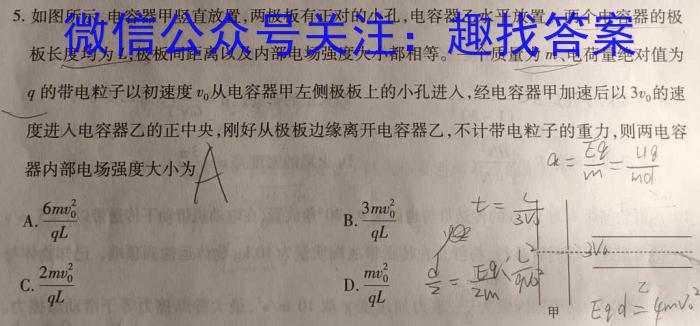 5. 如图所示,电容器甲竖直放置,两极板有正对的小孔,电容器乙水平放置,两个电容器的极
板长度均为L,极板间距离以及内部电场强度大小都相等。一个质量为m、电荷量绝对值为
微信公众号关注：趣找答案
q的带电粒子以初速度v₀从电容器甲左侧极板上的小孔进入,经电容器甲加速后以3v₀的速
度进入电容器乙的正中央,刚好从极板边缘离开电容器乙,不计带电粒子的重力,则两电容
器内部电场强度大小为 A
a = Eq/m = Uq/md
A. 6mv₀²/qL
B. 3mv₀²/qL
t = L/3V₀
C. 2mv₀²/qL
D. mv₀²/qL
d/2 = Eq/2m · L²/9V₀²
3V₀
甲
乙
Eqd = 4mv₀²